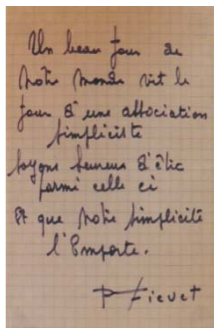 Un beau jour de
notre monde vit le
jour d'une association
simpliciste
soyons heureux d'être
parmi celle ci
Et que notre simplicité
l'Emporte.
P Fievet